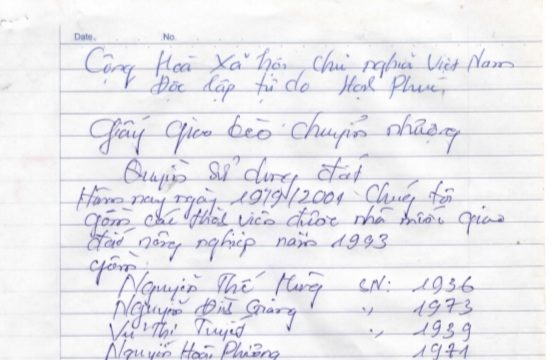 Date. No.
Cộng Hoà Xã hội chủ nghĩa Việt Nam
Độc lập tự do Hạnh Phúc
Giấy giao kèo chuyển nhượng
Quyền sử dụng đất
Hôm nay ngày 19/9/2001 Chúng tôi
gồm các thành viên được nhà nước giao
đất nông nghiệp năm 1993
gồm:
Nguyễn Thế Hùng SN: 1936
Nguyễn Giang ,, 1973
Vũ Thị Tuyết ,, 1939
Nguyễn Hoài Phương 1971